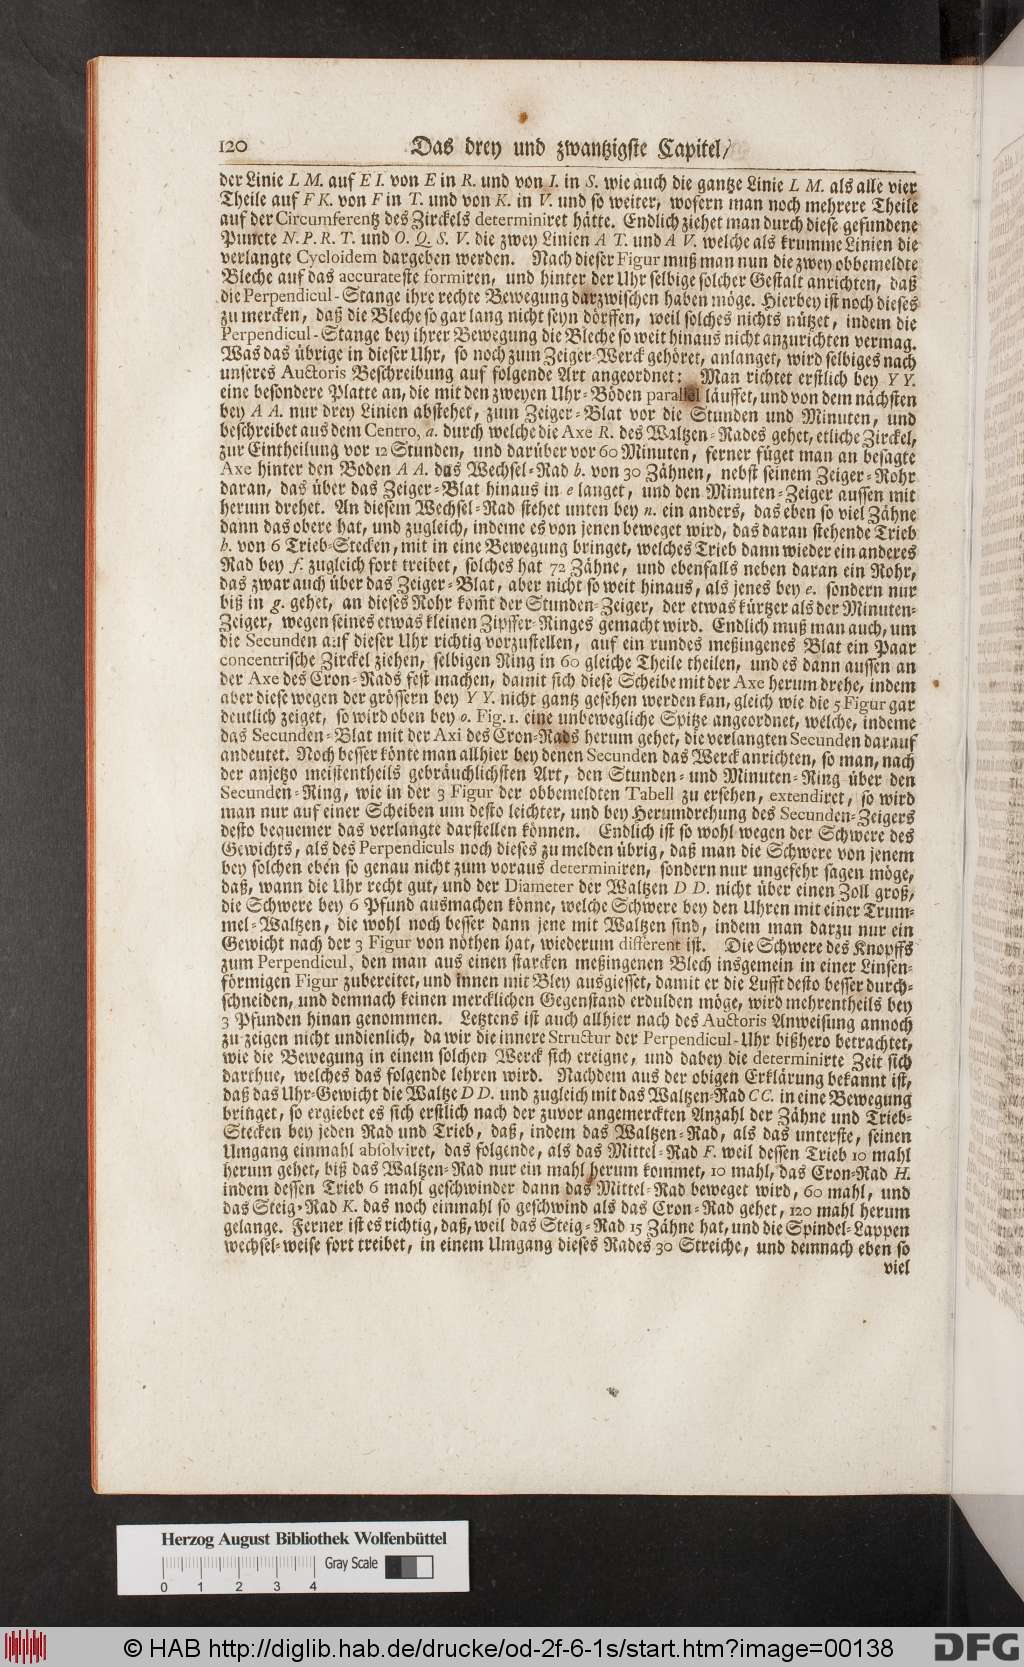 120 Das drey und zwantzigste Capitel/
der Linie L M. auf E I. von E in R. und von I. in S. wie auch die gantze Linie L M. als alle vier
Theile auf F K. von F in T. und von K. in V. und so weiter, wofern man noch mehrere Theile
auf der Circumferentz des Zirckels determiniret hätte. Endlich ziehet man durch diese gefundene
Puncte N. P. R. T. und O. Q. S. V. die zwey Linien A T. und A V. welche als krumme Linien die
verlangte Cycloidem dargeben werden. Nach dieser Figur muß man nun die zwey obbemeldte
Bleche auf das accurateste formiren, und hinter der Uhr selbige solcher Gestalt anrichten, daß
die Perpendicul-Stange ihre rechte Bewegung darzwischen haben möge. Hierbey ist noch dieses
zu mercken, daß die Bleche so gar lang nicht seyn dörffen, weil solches nichts nützet, indem die
Perpendicul-Stange bey ihrer Bewegung die Bleche so weit hinaus nicht anzurichten vermag.
Was das übrige in dieser Uhr, so noch zum Zeiger-Werck gehöret, anlanget, wird selbiges nach
unseres Auctoris Beschreibung auf folgende Art angeordnet: Man richtet erstlich bey Y Y.
eine besondere Platte an, die mit den zweyen Uhr-Böden parallel läuffet, und von dem nächsten
bey A A. nur drey Linien abstehet, zum Zeiger-Blat vor die Stunden und Minuten, und
beschreibet aus dem Centro, a. durch welche die Axe R. des Waltzen-Rades gehet, etliche Zirckel,
zur Eintheilung vor 12 Stunden, und darüber vor 60 Minuten, ferner füget man an besagte
Axe hinter den Boden A A. das Wechsel-Rad b. von 30 Zähnen, nebst seinem Zeiger-Rohr
daran, das über das Zeiger-Blat hinaus in e langet, und den Minuten-Zeiger aussen mit
herum drehet. An diesem Wechsel-Rad stehet unten bey n. ein anders, das eben so viel Zähne
dann das obere hat, und zugleich, indeme es von jenen beweget wird, das daran stehende Trieb
b. von 6 Trieb-Stecken, mit in eine Bewegung bringet, welches Trieb dann wieder ein anderes
Rad bey f. zugleich fort treibet, solches hat 72 Zähne, und ebenfalls neben daran ein Rohr,
das zwar auch über das Zeiger-Blat, aber nicht so weit hinaus, als jenes bey e. sondern nur
biß in g. gehet, an dieses Rohr kom̄t der Stunden-Zeiger, der etwas kürtzer als der Minuten-
Zeiger, wegen seines etwas kleinen Zipffer-Ringes gemacht wird. Endlich muß man auch, um
die Secunden auf dieser Uhr richtig vorzustellen, auf ein rundes meßingenes Blat ein Paar
concentrische Zirckel ziehen, selbigen Ring in 60 gleiche Theile theilen, und es dann aussen an
der Axe des Cron-Rads fest machen, damit sich diese Scheibe mit der Axe herum drehe, indem
aber diese wegen der grössern bey Y Y. nicht gantz gesehen werden kan, gleich wie die 5 Figur gar
deutlich zeiget, so wird oben bey o. Fig. 1. eine unbewegliche Spitze angeordnet, welche, indeme
das Secunden-Blat mit der Axi des Cron-Rads herum gehet, die verlangten Secunden darauf
andeutet. Noch besser könte man allhier bey denen Secunden das Werck anrichten, so man, nach
der anjetzo meistentheils gebräuchlichsten Art, den Stunden- und Minuten-Ring über den
Secunden-Ring, wie in der 3 Figur der obbemeldten Tabell zu ersehen, extendiret, so wird
man nur auf einer Scheiben um desto leichter, und bey Herumdrehung des Secunden-Zeigers
desto bequemer das verlangte darstellen können. Endlich ist so wohl wegen der Schwere des
Gewichts, als des Perpendiculs noch dieses zu melden übrig, daß man die Schwere von jenem
bey solchen eben so genau nicht zum voraus determiniren, sondern nur ungefehr sagen möge,
daß, wann die Uhr recht gut, und der Diameter der Waltzen D D. nicht über einen Zoll groß,
die Schwere bey 6 Pfund ausmachen könne, welche Schwere bey den Uhren mit einer Trum-
mel-Waltzen, die wohl noch besser dann jene mit Waltzen sind, indem man darzu nur ein
Gewicht nach der 3 Figur von nöthen hat, wiederum different ist. Die Schwere des Knopffs
zum Perpendicul, den man aus einen starcken meßingenen Blech insgemein in einer Linsen-
förmigen Figur zubereitet, und innen mit Bley ausgiesset, damit er die Lufft desto besser durch-
schneiden, und demnach keinen mercklichen Gegenstand erdulden möge, wird mehrentheils bey
3 Pfunden hinan genommen. Letztens ist auch allhier nach des Auctoris Anweisung annoch
zu zeigen nicht undienlich, da wir die innere Structur der Perpendicul-Uhr bißhero betrachtet,
wie die Bewegung in einem solchen Werck sich ereigne, und dabey die determinirte Zeit sich
darthue, welches das folgende lehren wird. Nachdem aus der obigen Erklärung bekannt ist,
daß das Uhr-Gewicht die Waltze D D. und zugleich mit das Waltzen-Rad C C. in eine Bewegung
bringet, so ergiebet es sich erstlich nach der zuvor angemerckten Anzahl der Zähne und Trieb-
Stecken bey jeden Rad und Trieb, daß, indem das Waltzen-Rad, als das unterste, seinen
Umgang einmahl absolviret, das folgende, als das Mittel-Rad F. weil dessen Trieb 10 mahl
herum gehet, biß das Waltzen-Rad nur ein mahl herum kommet, 10 mahl, das Cron-Rad H.
indem dessen Trieb 6 mahl geschwinder dann das Mittel-Rad beweget wird, 60 mahl, und
das Steig-Rad K. das noch einmahl so geschwind als das Cron-Rad gehet, 120 mahl herum
gelange. Ferner ist es richtig, daß, weil das Steig-Rad 15 Zähne hat, und die Spindel-Lappen
wechsel-weise fort treibet, in einem Umgang dieses Rades 30 Streiche, und demnach eben so
viel
Herzog August Bibliothek Wolfenbüttel
Gray Scale
0 1 2 3 4
© HAB http://diglib.hab.de/drucke/od-2f-6-1s/start.htm?image=00138
DFG